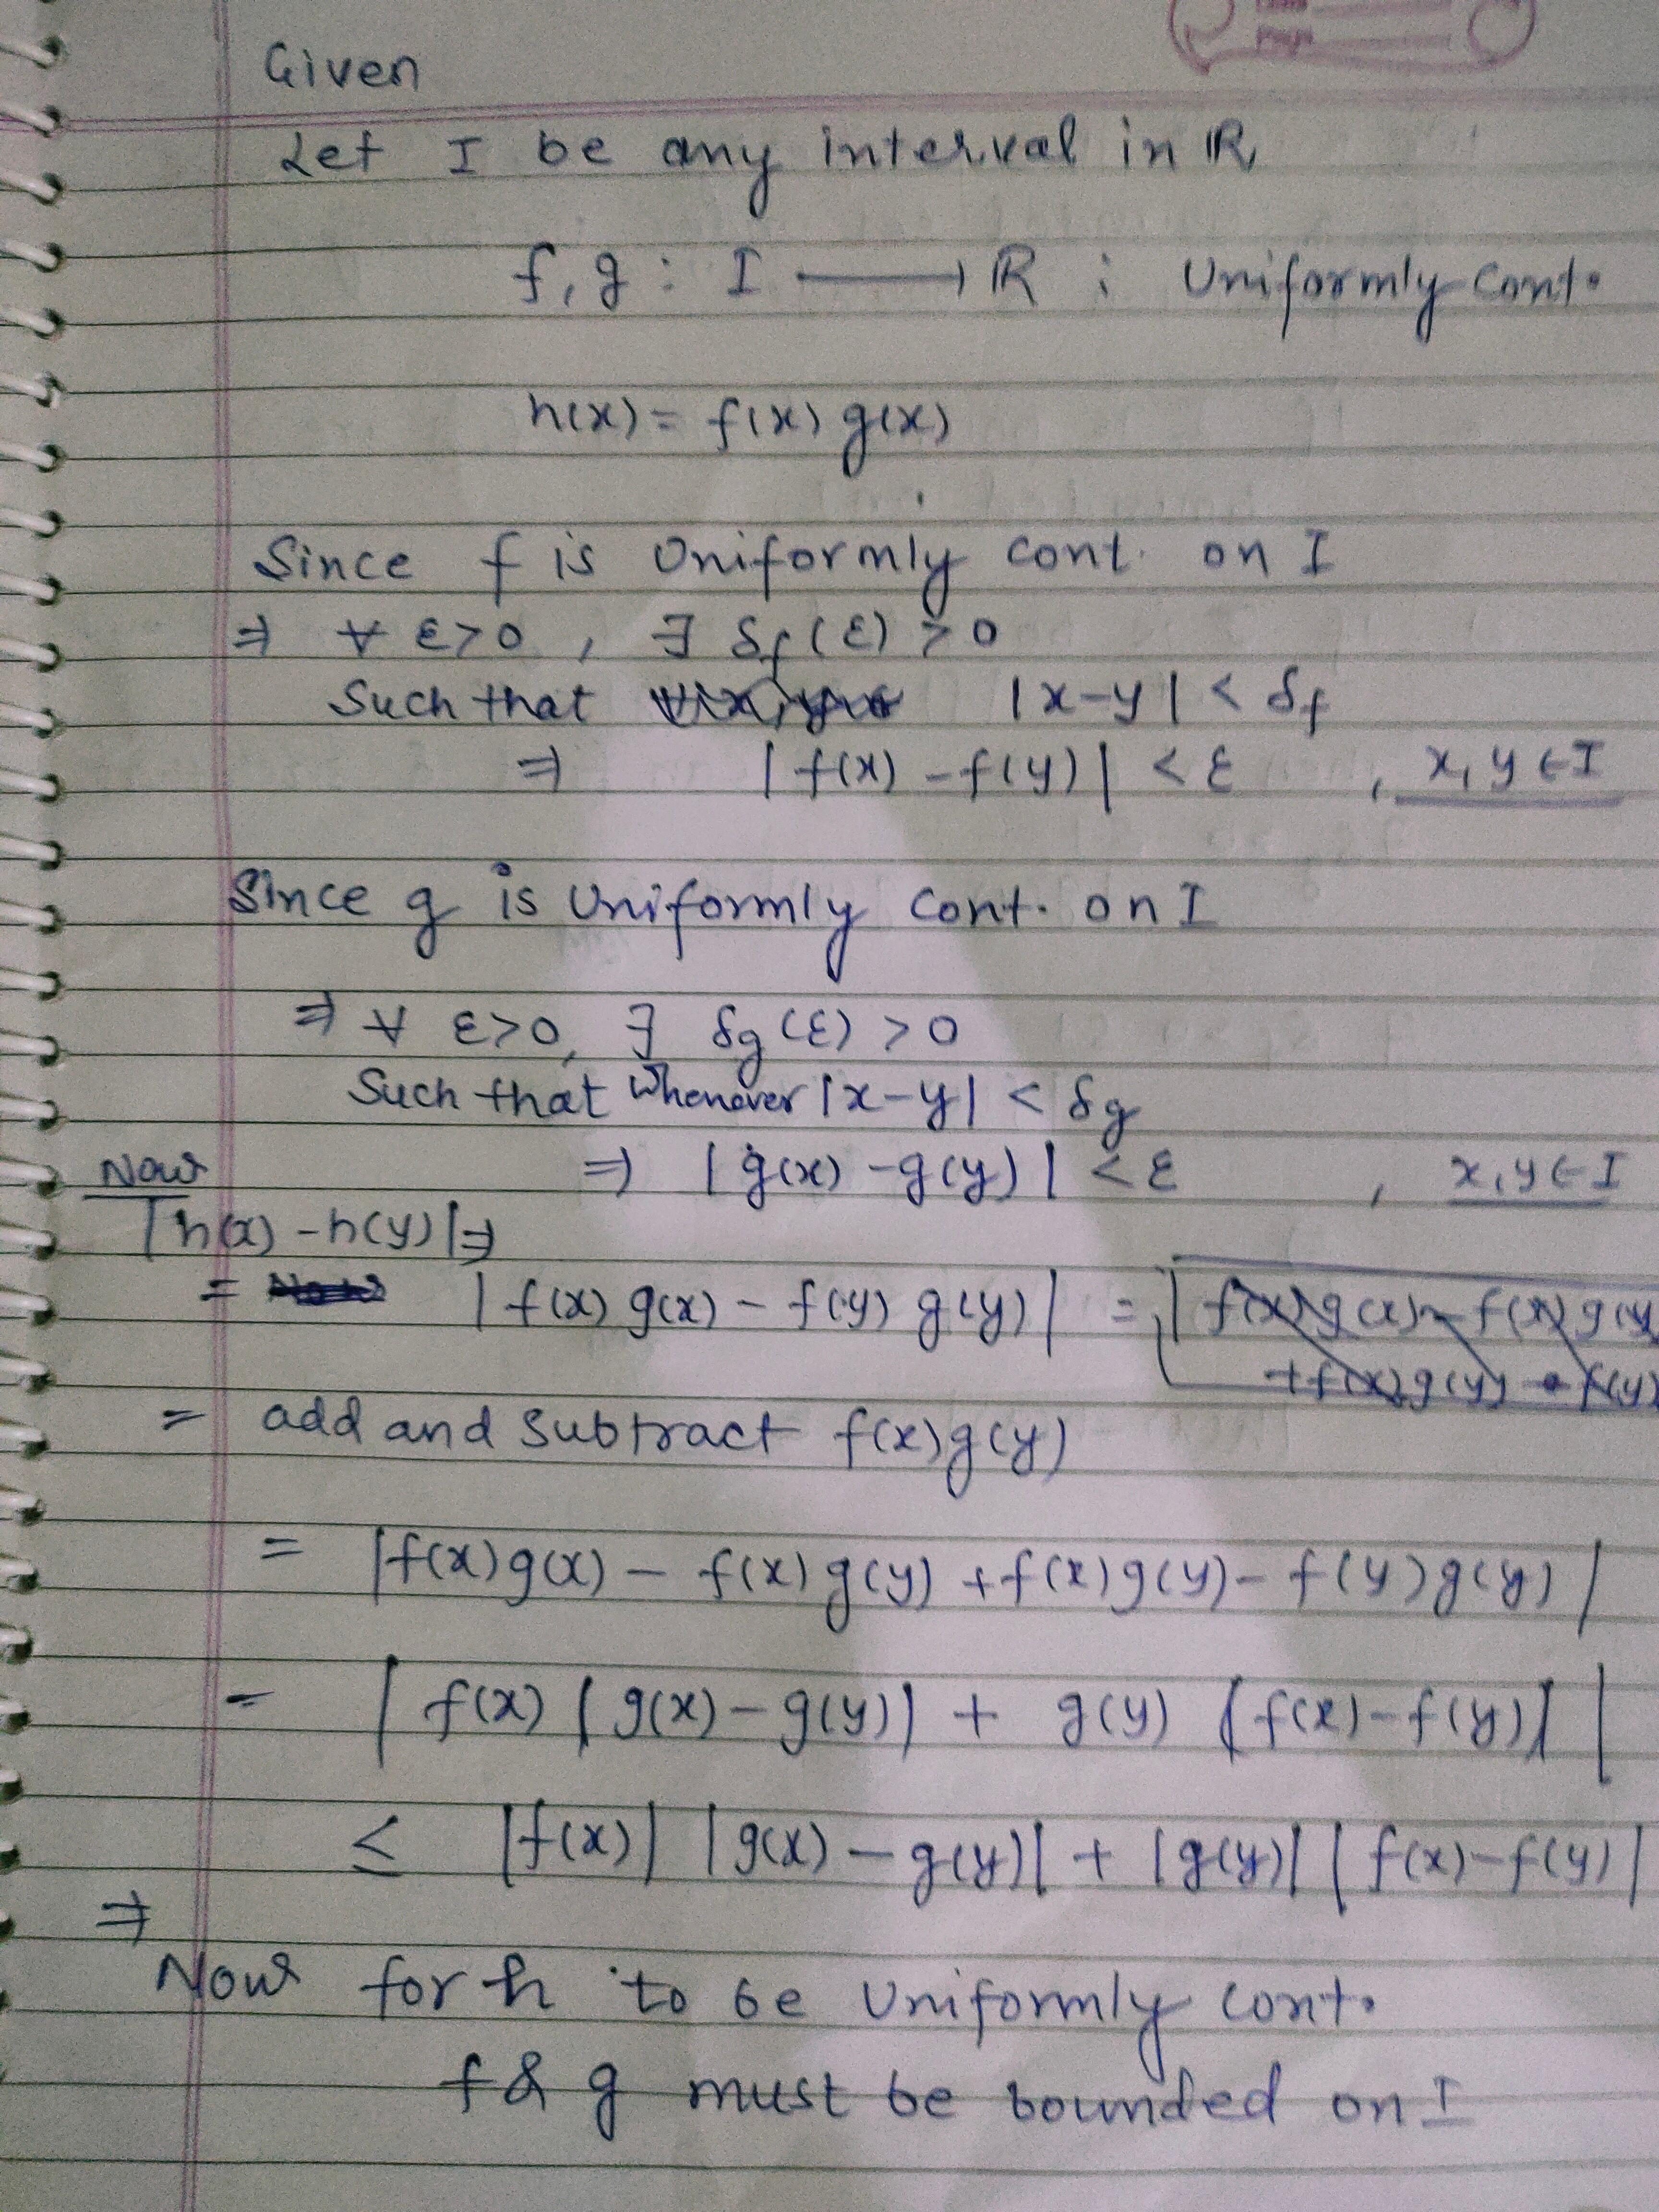 Page
Given
Let I be any interval in ℝ
f, g : I ⟶ ℝ ; Uniformly cont.
h(x) = f(x) g(x)
Since f is Uniformly cont. on I
⇒ ∀ ε>0 , ∃ δf(ε) > 0
Such that |x-y| < δf
⇒ |f(x) - f(y)| < ε , x, y ∈ I
Since g is Uniformly cont. on I
⇒ ∀ ε>0, ∃ δg(ε) > 0
Such that Whenever |x-y| < δg
Now ⇒ |g(x) - g(y)| < ε , x, y ∈ I
|h(x) - h(y)| ⇒
= |f(x) g(x) - f(y) g(y)| =
= add and subtract f(x)g(y)
= |f(x)g(x) - f(x)g(y) + f(x)g(y) - f(y)g(y)|
= |f(x) [g(x) - g(y)] + g(y) [f(x) - f(y)]|
≤ |f(x)| |g(x) - g(y)| + |g(y)| |f(x) - f(y)|
⇒
Now for h to be Uniformly cont.
f & g must be bounded on I